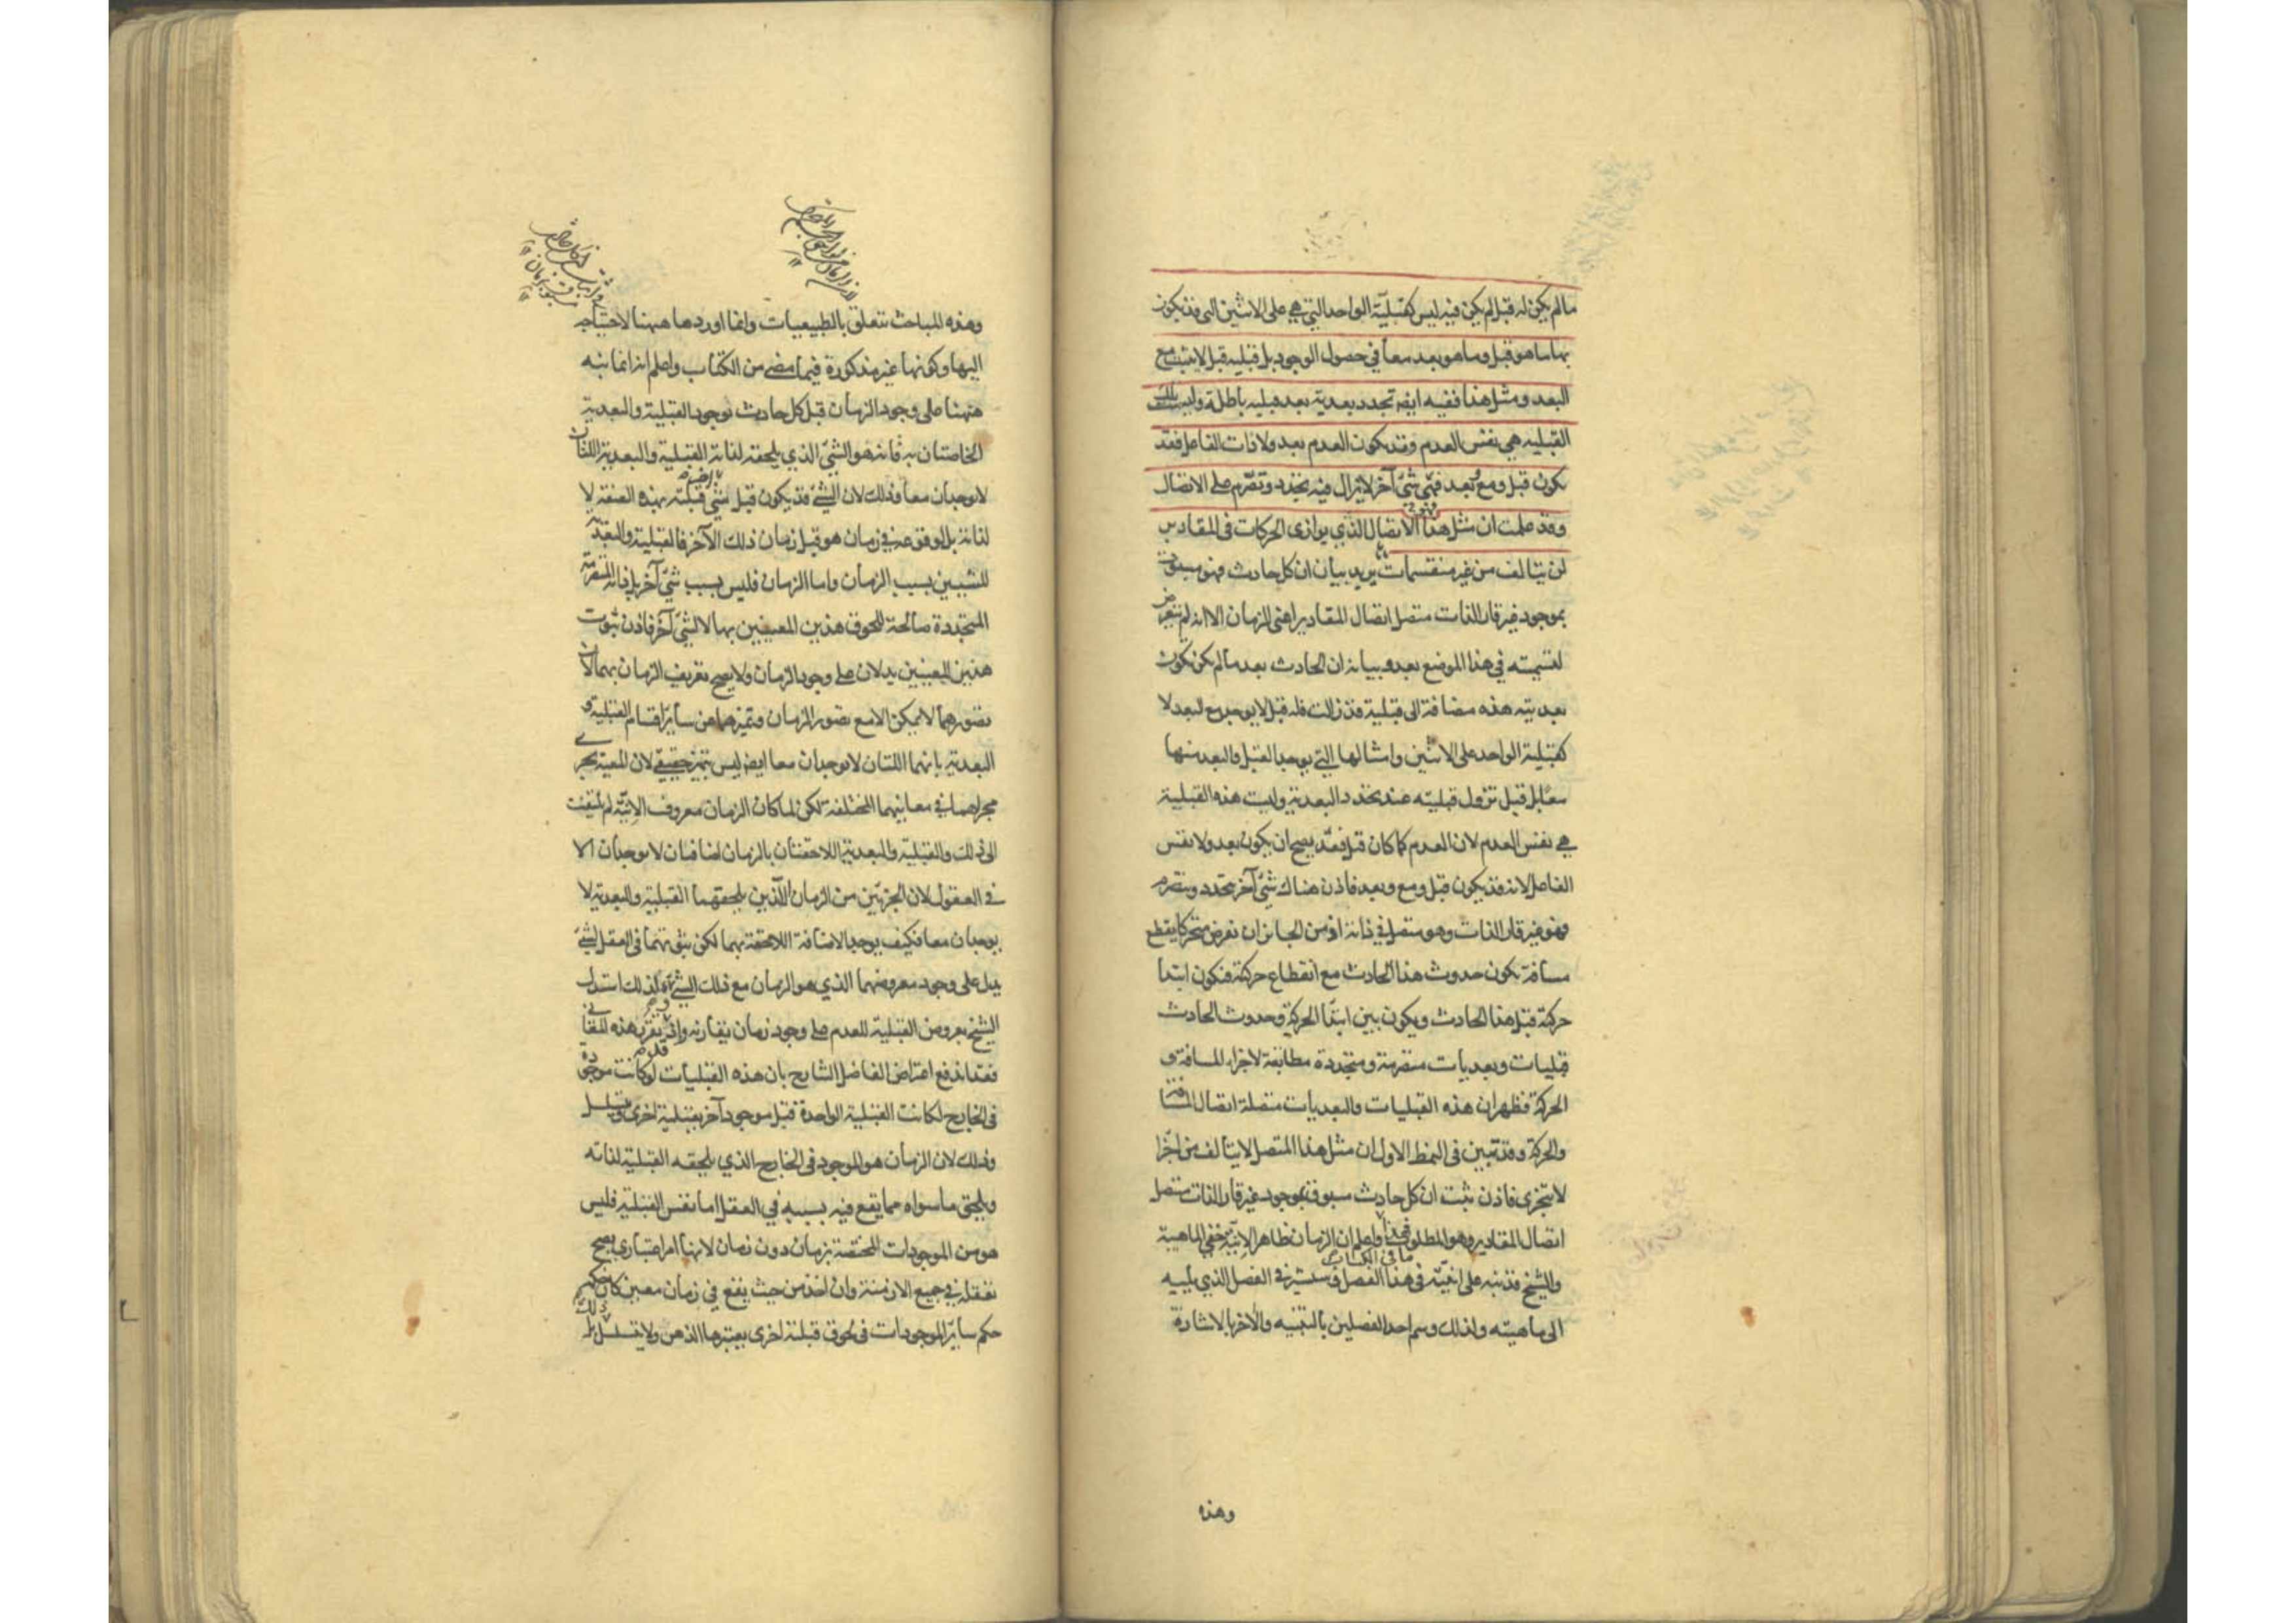 ما لم يكن له قبل لم يكن فيه ليس كقبلية الواحد التي هي على الاثنين التي قد يكون
بها ما هو قبل وما هو بعد معا في حصول الوجود بل قبلية قبل لا يثبت مع
البعد ومثل هذا ففيه ايضا تجدد بعدية بعد قبلية باطلة وليس تلك
القبلية هي نفس العدم وقد يكون العدم بعد ولا ذات الفاعل فقد
يكون قبل ومع وبعد فهي شئ آخر لا يزال فيه تجدد وتصرم على الاتصال
وقد علمت ان مثل هذا الاتصال الذي يوازى الحركات في المقادير
لن يتالف من غير منقسمات يريد بيان ان كل حادث فهو مسبوق
بموجود غير قار الذات متصل اتصال المقادير اعنى الزمان الا انه لم يتعرض
لتسميته في هذا الموضع بعد وبيانه ان الحادث بعد ما لم يكن تكون
بعديته هذه مضافة الى قبلية قد زالت فله قبل لا يوجد مع البعد لا
كقبلية الواحد على الاثنين وامثالها التي يوجد القبل والبعد منها
معا بل قبل تزول قبليته عند تجدد البعدية وليست هذه القبلية
هي نفس العدم لان العدم كما كان قبل فقد يصح ان يكون بعد ولا نفس
الفاعل لانه قد يكون قبل ومع وبعد فاذن هناك شئ آخر يتجدد ويتصرم
فهو غير قار الذات وهو متصل في ذاته اذ من الجائز ان نفرض متحركا يقطع
مسافة يكون حدوث هذا الحادث مع انقطاع حركته فتكون ابتدا
حركته قبل هذا الحادث ويكون بين ابتدا الحركة وحدوث الحادث
قبليات وبعديات متصرمة ومتجددة مطابقة لاجزاء المسافة و
الحركة فظهر ان هذه القبليات والبعديات متصلة اتصال المسافة
والحركة وقد تبين في النمط الاول ان مثل هذا المتصل لا يتالف من اجزا
لا يتجزى فاذن ثبت ان كل حادث مسبوق بموجود غير قار الذات متصل
اتصال المقادير وهو المطلوب واعلم ان الزمان ظاهر الانية خفي الماهية
ما في الكتاب
والشيخ قد نبه على انيته في هذا الفصل وسيشير في الفصل الذي يليه
الى ماهيته ولذلك وسم احد الفصلين بالتنبيه والآخر بالاشارة
وهذه
وهذه المباحث تتعلق بالطبيعيات وانما اوردها ههنا لاحتياجه
اليها وكونها غير مذكورة فيما مضى من الكتاب واعلم انه انما نبه
ههنا على وجود الزمان قبل كل حادث بوجود القبلية والبعدية
الخاصتان به فانه هو الشئ الذي يلحقه لذاته القبلية والبعدية اللتان
لا يوجدان معا وذلك لان الشئ قد يكون قبل شئ قبليته بهذه الصفة لا
لذاته بل لوقوعه في زمان هو قبل زمان ذلك الآخر فالقبلية والبعدية
للشيئين بسبب الزمان واما الزمان فليس بسبب شئ آخر بل ذاته المتصرمة
المتجددة صالحة للحوق هذين المعنيين بها لا لشئ آخر فاذن ثبوت
هذين المعنيين يدلان على وجود الزمان ولا يصح تعريف الزمان بهما لان
تصورهما لا يمكن الا مع تصور الزمان وتميزهما عن سائر اقسام القبلية و
البعدية بانهما اللتان لا يوجدان معا ايضا ليس بتميز حقيقي لان المعية تجري
مجراهما في معانيهما المختلفة لكن لما كان الزمان معروف الانية لم يلتفت
الى ذلك والقبلية والبعدية اللاحقتان بالزمان اضافتان لا يوجدان الا
في العقول لان الجزئين من الزمان اللذين يلحقهما القبلية والبعدية لا
يوجدان معا فكيف يوجد الاضافة اللاحقة بهما لكن ثبوتهما في العقل لشئ
يدل على وجود معروضهما الذي هو الزمان مع ذلك الشئ ولذلك استدل
الشيخ بعروض القبلية للعدم على وجود زمان يقارنه واذ تقرر هذه المعاني
فقد اندفع اعتراض الفاضل الشارح بان هذه القبليات لو كانت موجودة
في الخارج لكانت القبلية الواحدة قبل موجود آخر بقبلية اخرى ويتسلسل
وذلك لان الزمان هو الموجود في الخارج الذي يلحقه القبلية لذاته
ويلحق ما سواه مما يقع فيه بسببه في العقل اما نفس القبلية فليس
هو من الموجودات المختصة بزمان دون زمان لانها امر اعتبارى يصح
تعقله في جميع الازمنة وان اخذ من حيث يقع في زمان معين كان حكمه
حكم سائر الموجودات في لحوق قبلية اخرى يعتبرها الذهن ولا يتسلسل